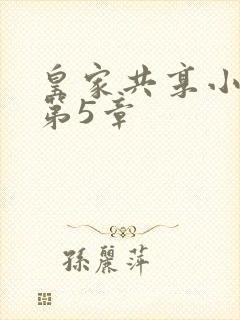 皇家共享小
第5章
孫麗萍